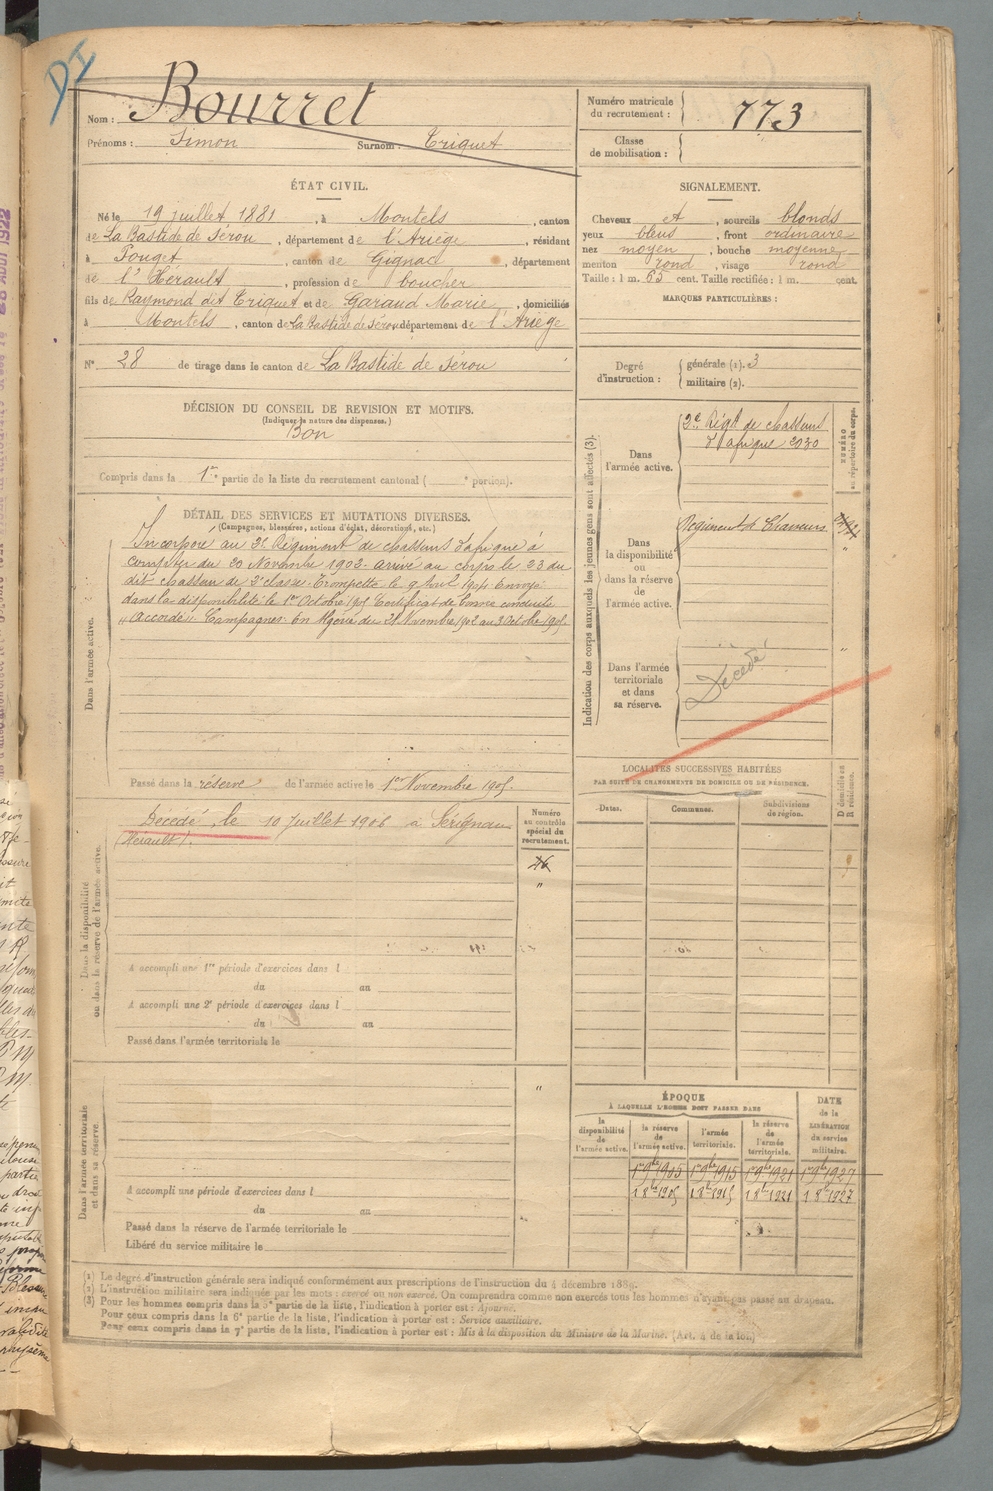 DI
Nom : Bourret
Prénoms : Simon Surnom : Triquet
Numéro matricule du recrutement : 773
Classe de mobilisation :
ÉTAT CIVIL.
Né le 19 juillet 1881, à Montels, canton
de La Bastide de Sérou, département de l'Ariège, résidant
à Pouget, canton de Gignac, département
de l'Hérault, profession de boucher
fils de Raymond dit Triquet et de Garaud Marie, domiciliés
à Montels, canton de La Bastide de Sérou département de l'Ariège
N° 28 de tirage dans le canton de La Bastide de Sérou
SIGNALEMENT.
Cheveux et, sourcils blonds
yeux bleus, front ordinaire
nez moyen, bouche moyenne
menton rond, visage rond
Taille : 1 m. 65 cent. Taille rectifiée : 1 m. cent.
MARQUES PARTICULIÈRES :
Degré d'instruction : générale (1). 3
militaire (2).
DÉCISION DU CONSEIL DE REVISION ET MOTIFS.
(Indiquer la nature des dispenses.)
Bon
Compris dans la 1re partie de la liste du recrutement cantonal ( e portion).
DÉTAIL DES SERVICES ET MUTATIONS DIVERSES.
(Campagnes, blessures, actions d'éclat, décorations, etc.)
Dans l'armée active.
Incorporé au 2e Régiment de chasseurs d'afrique à
compter du 20 Novembre 1902. arrivé au corps le 23 du
dit chasseur de 2e classe. Trompette le 9 Avril 1904 Envoyé
dans la disponibilité le 1er Octobre 1905 Certificat de bonne conduite
"accordé". Campagnes: En Algérie du 21 Novembre 1902 au 3 Octobre 1905
Passé dans la réserve de l'armée active le 1er Novembre 1905.
Dans la disponibilité ou dans la réserve de l'armée active.
Décédé le 10 Juillet 1906 à Sérignan
(Hérault).
Numéro au contrôle spécial du recrutement.
"
A accompli une 1re période d'exercices dans l
du au
A accompli une 2e période d'exercices dans l
du au
Passé dans l'armée territoriale le
Dans l'armée territoriale et dans sa réserve.
"
A accompli une période d'exercices dans l
du au
Passé dans la réserve de l'armée territoriale le
Libéré du service militaire le
Indication des corps auxquels les jeunes gens sont affectés (3).
NUMÉRO au répertoire du corps.
Dans l'armée active.
2e Régt de chasseurs
d'afrique 2030
Dans la disponibilité ou dans la réserve de l'armée active.
Régiment de Chasseurs
"
Dans l'armée territoriale et dans sa réserve.
Décédé
"
LOCALITÉS SUCCESSIVES HABITÉES
PAR SUITE DE CHANGEMENTS DE DOMICILE OU DE RÉSIDENCE.
Dates. Communes. Subdivisions de région. D domicile ou R résidence.
ÉPOQUE
À LAQUELLE L'HOMME DOIT PASSER DANS
DATE de la LIBÉRATION du service militaire.
la disponibilité de l'armée active. la réserve de l'armée active. l'armée territoriale. la réserve de l'armée territoriale.
1r 9bre 1905 1r 9bre 1915 1r 9bre 1921 1r 9bre 1927
1 8bre 1905 1 8bre 1915 1 8bre 1921 1 8bre 1927
(1) Le degré d'instruction générale sera indiqué conformément aux prescriptions de l'instruction du 4 décembre 1889.
(2) L'instruction militaire sera indiquée par les mots : exercé ou non exercé. On comprendra comme non exercés tous les hommes n'ayant pas passé au drapeau.
(3) Pour les hommes compris dans la 5e partie de la liste, l'indication à porter est : Ajourné.
Pour ceux compris dans la 6e partie de la liste, l'indication à porter est : Service auxiliaire.
Pour ceux compris dans la 7e partie de la liste, l'indication à porter est : Mis à la disposition du Ministre de la Marine. (Art. 4 de la loi.)